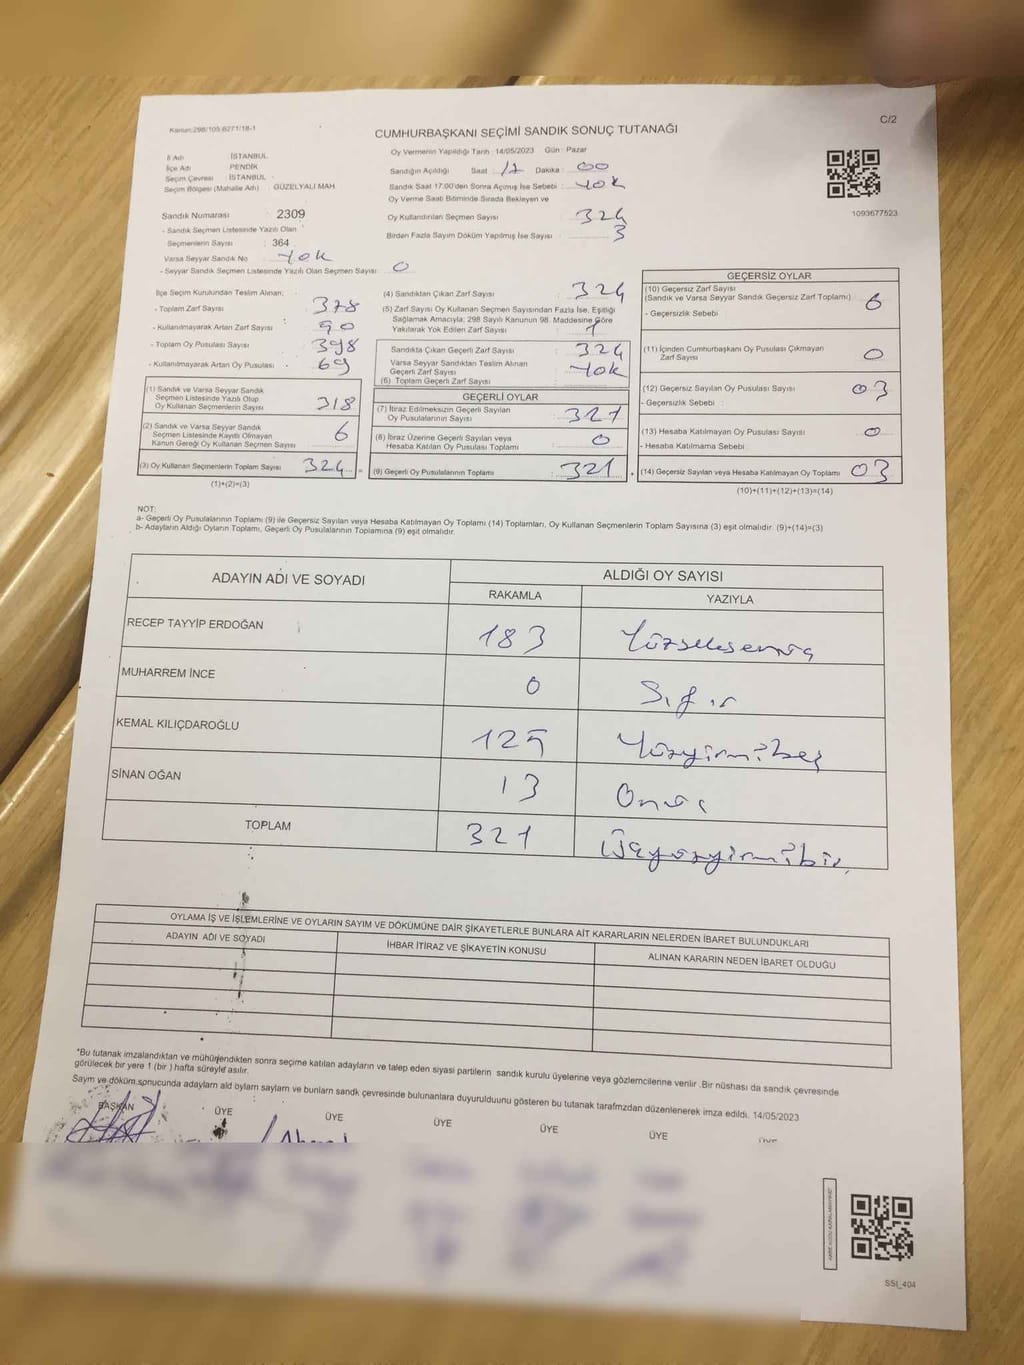 Kanun:298/105-6271/18-1
C/2
CUMHURBAŞKANI SEÇİMİ SANDIK SONUÇ TUTANAĞI
İl Adı İSTANBUL
İlçe Adı PENDİK
Seçim Çevresi İSTANBUL
Seçim Bölgesi (Mahalle Adı) : GÜZELYALI MAH.
Sandık Numarası 2309
- Sandık Seçmen Listesinde Yazılı Olan
Seçmenlerin Sayısı : 364
Varsa Seyyar Sandık No Yok
- Seyyar Sandık Seçmen Listesinde Yazılı Olan Seçmen Sayısı : 0
Oy Vermenin Yapıldığı Tarih : 14/05/2023 Gün : Pazar
Sandığın Açıldığı Saat : 17 Dakika : 00
Sandık Saat 17:00'den Sonra Açılmış İse Sebebi : Yok
Oy Verme Saati Bitiminde Sırada Bekleyen ve
Oy Kullandırılan Seçmen Sayısı 324
Birden Fazla Sayım Döküm Yapılmış İse Sayısı 3
1093677523
İlçe Seçim Kurulundan Teslim Alınan;
- Toplam Zarf Sayısı : 378
- Kullanılmayarak Artan Zarf Sayısı : 90
- Toplam Oy Pusulası Sayısı : 398
- Kullanılmayarak Artan Oy Pusulası 69
(1) Sandık ve Varsa Seyyar Sandık
Seçmen Listesinde Yazılı Olup
Oy Kullanan Seçmenlerin Sayısı 318
(2) Sandık ve Varsa Seyyar Sandık
Seçmen Listesinde Kayıtlı Olmayan
Kanun Gereği Oy Kullanan Seçmen Sayısı 6
(3) Oy Kullanan Seçmenlerin Toplam Sayısı 324
(1)+(2)=(3)
(4) Sandıktan Çıkan Zarf Sayısı 324
(5) Zarf Sayısı Oy Kullanan Seçmen Sayısından Fazla İse, Eşitliği
Sağlamak Amacıyla; 298 Sayılı Kanunun 98. Maddesine Göre
Yakılarak Yok Edilen Zarf Sayısı
Sandıkta Çıkan Geçerli Zarf Sayısı 324
Varsa Seyyar Sandıktan Teslim Alınan
Geçerli Zarf Sayısı Yok
(6) Toplam Geçerli Zarf Sayısı
GEÇERLİ OYLAR
(7) İtiraz Edilmeksizin Geçerli Sayılan
Oy Pusulalarının Sayısı 321
(8) İtiraz Üzerine Geçerli Sayılan veya
Hesaba Katılan Oy Pusulası Toplamı 0
(9) Geçerli Oy Pusulalarının Toplamı 321
GEÇERSİZ OYLAR
(10) Geçersiz Zarf Sayısı
(Sandık ve Varsa Seyyar Sandık Geçersiz Zarf Toplamı) 6
- Geçersizlik Sebebi :
(11) İçinden Cumhurbaşkanı Oy Pusulası Çıkmayan
Zarf Sayısı 0
(12) Geçersiz Sayılan Oy Pusulası Sayısı 03
- Geçersizlik Sebebi :
(13) Hesaba Katılmayan Oy Pusulası Sayısı 0
- Hesaba Katılmama Sebebi :
(14) Geçersiz Sayılan veya Hesaba Katılmayan Oy Toplamı 03
(10)+(11)+(12)+(13)=(14)
NOT:
a- Geçerli Oy Pusulalarının Toplamı (9) ile Geçersiz Sayılan veya Hesaba Katılmayan Oy Toplamı (14) Toplamları, Oy Kullanan Seçmenlerin Toplam Sayısına (3) eşit olmalıdır. (9)+(14)=(3)
b- Adayların Aldığı Oyların Toplamı, Geçerli Oy Pusulalarının Toplamına (9) eşit olmalıdır.
ADAYIN ADI VE SOYADI ALDIĞI OY SAYISI
RAKAMLA YAZIYLA
RECEP TAYYİP ERDOĞAN 183 Yüzseksenüç
MUHARREM İNCE 0 Sıfır
KEMAL KILIÇDAROĞLU 125 Yüzyirmibeş
SİNAN OĞAN 13 Onüç
TOPLAM 321 Üçyüzyirmibir
OYLAMA İŞ VE İŞLEMLERİNE VE OYLARIN SAYIM VE DÖKÜMÜNE DAİR ŞİKAYETLERLE BUNLARA AİT KARARLARIN NELERDEN İBARET BULUNDUKLARI
ADAYIN ADI VE SOYADI İHBAR İTİRAZ VE ŞİKAYETİN KONUSU ALINAN KARARIN NEDEN İBARET OLDUĞU
*Bu tutanak imzalandıktan ve mühürlendikten sonra seçime katılan adayların ve talep eden siyasi partilerin sandık kurulu üyelerine veya gözlemcilerine verilir .Bir nüshası da sandık çevresinde
görülecek bir yere 1 (bir ) hafta süreyle asılır.
Saym ve döküm sonucunda adaylarn ald oylarn saylarn ve bunlarn sandk çevresinde bulunanlara duyurulduunu gösteren bu tutanak tarafmzdan düzenlenerek imza edildi. 14/05/2023
BAŞKAN ÜYE ÜYE ÜYE ÜYE ÜYE ÜYE
SSI_404